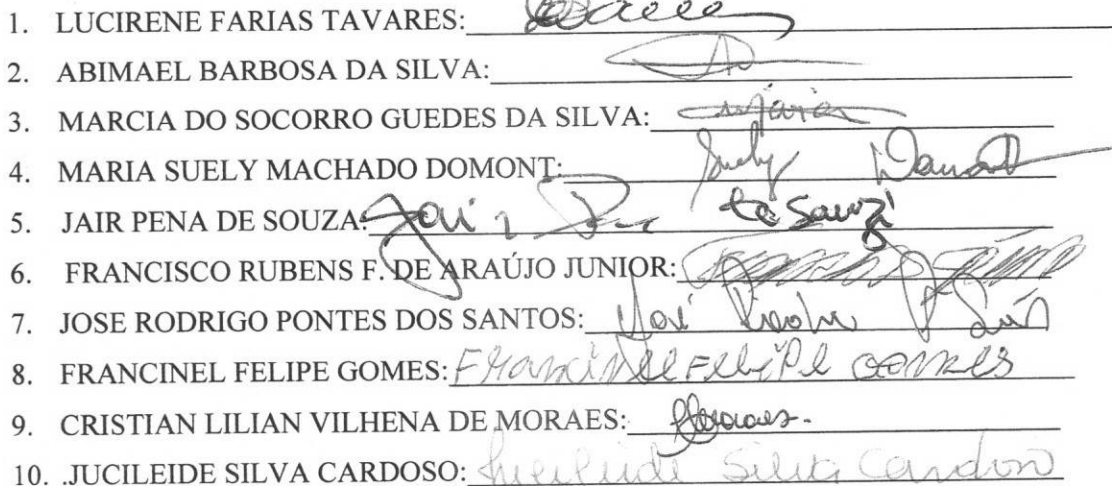 1. LUCIRENE FARIAS TAVARES:
2. ABIMAEL BARBOSA DA SILVA:
3. MARCIA DO SOCORRO GUEDES DA SILVA:
4. MARIA SUELY MACHADO DOMONT: Suely Damont
5. JAIR PENA DE SOUZA: Jair de Souza
6. FRANCISCO RUBENS F. DE ARAÚJO JUNIOR:
7. JOSE RODRIGO PONTES DOS SANTOS: José
8. FRANCINEL FELIPE GOMES: Francinel Felipe Gomes
9. CRISTIAN LILIAN VILHENA DE MORAES: Moraes.
10. .JUCILEIDE SILVA CARDOSO: Jucileide Silva Cardoso